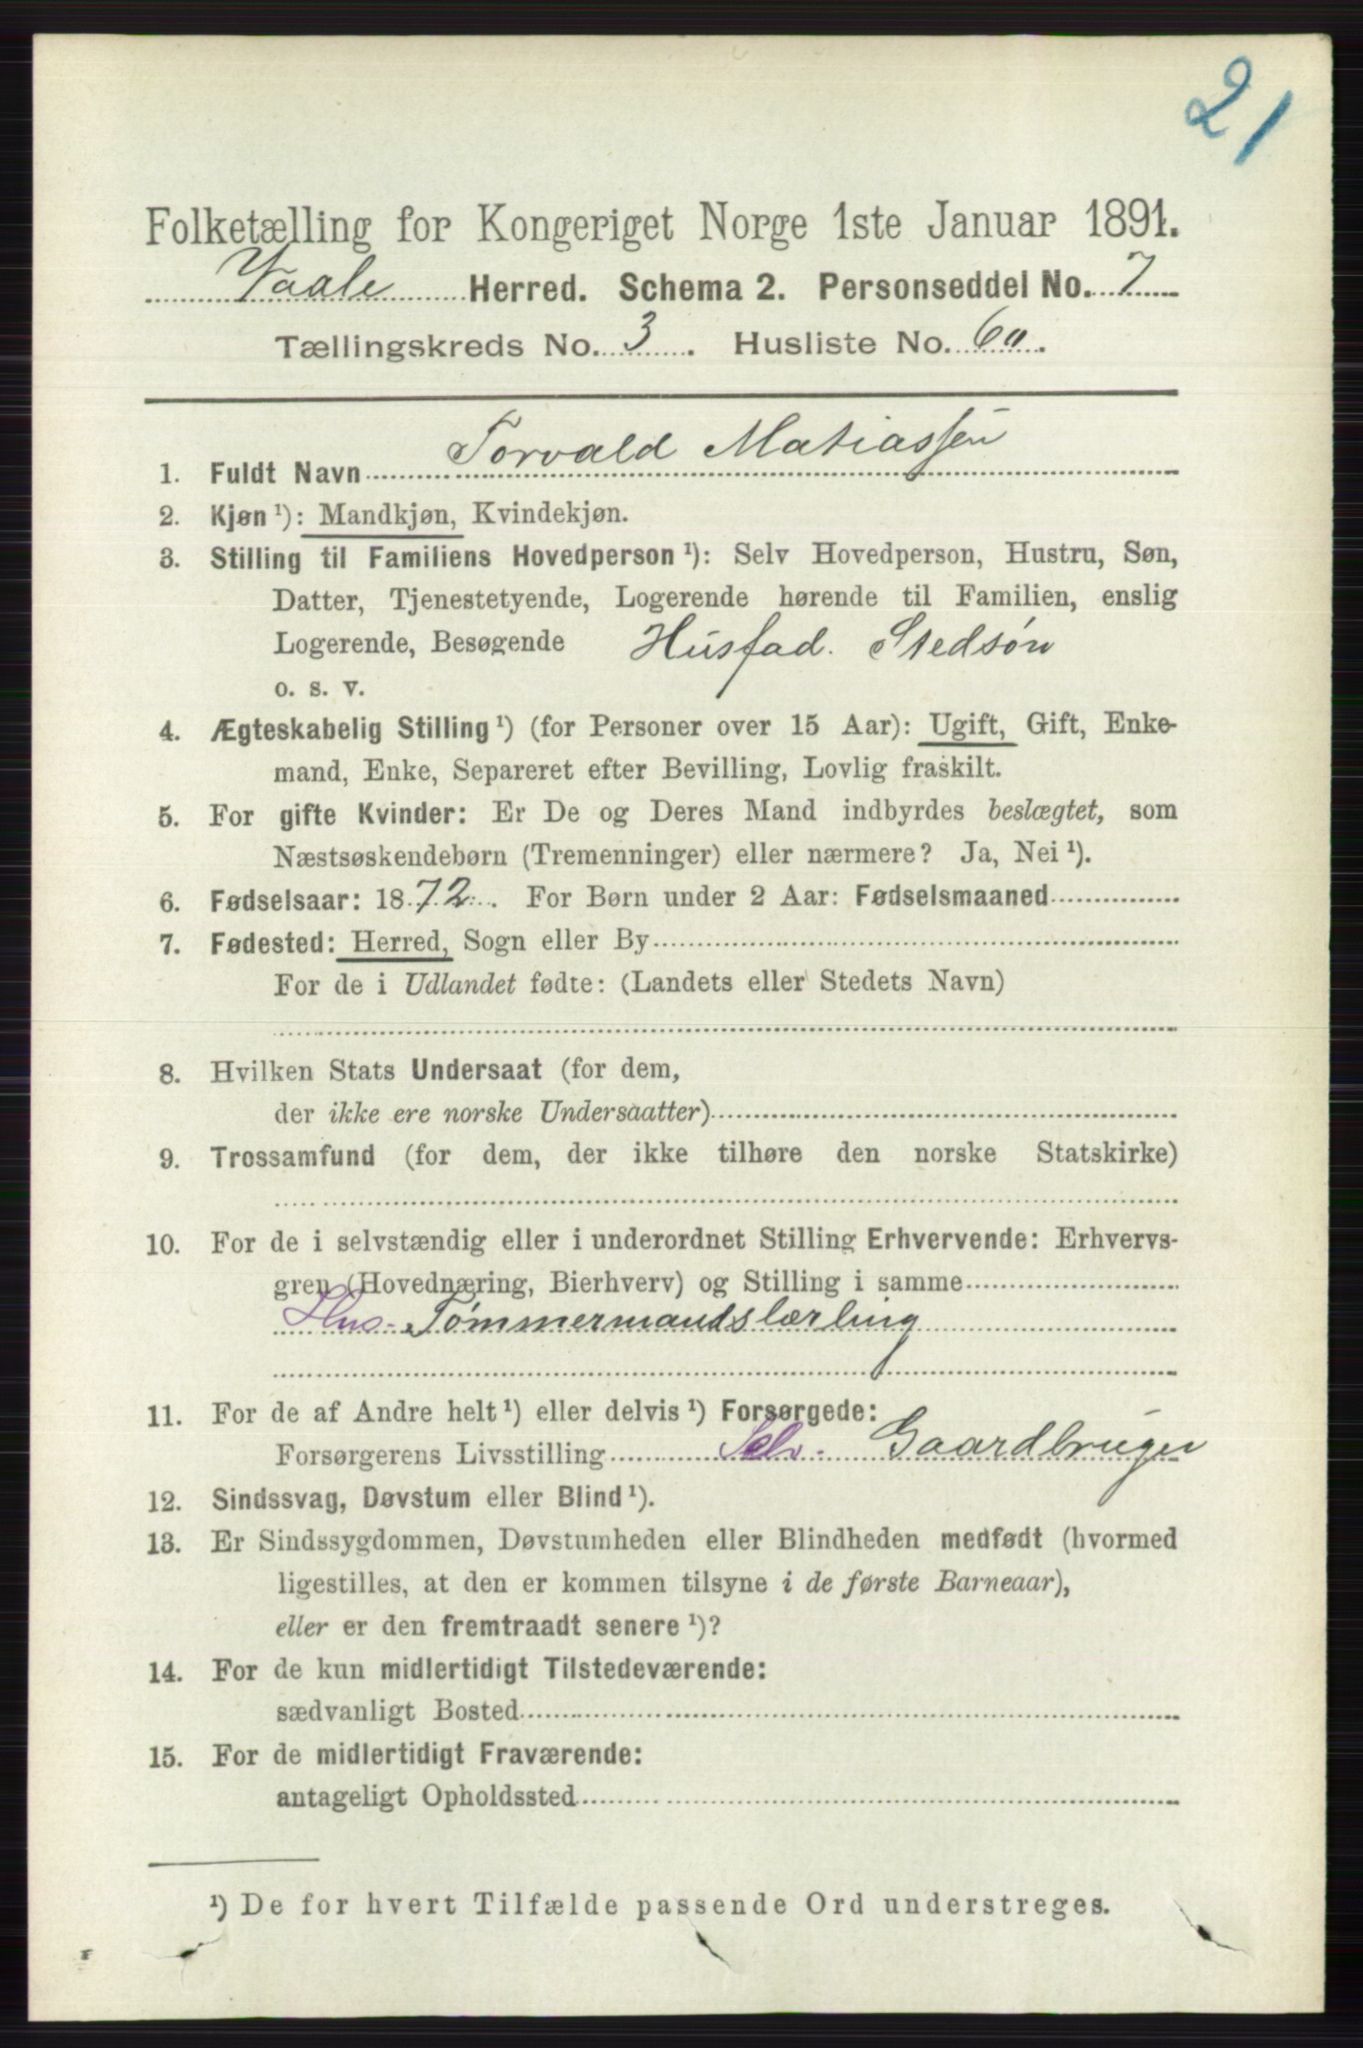 21
Folketælling for Kongeriget Norge 1ste Januar 1891.
Vaale Herred. Schema 2. Personseddel No. 7
Tællingskreds No. 3. Husliste No. 60.
1. Fuldt Navn Torvald Matiassen
2. Kjøn ¹): Mandkjøn, Kvindekjøn.
3. Stilling til Familiens Hovedperson ¹): Selv Hovedperson, Hustru, Søn,
Datter, Tjenestetyende, Logerende hørende til Familien, enslig
Logerende, Besøgende Husfad. Stedsøn
o. s. v.
4. Ægteskabelig Stilling ¹) (for Personer over 15 Aar): Ugift, Gift, Enke-
mand, Enke, Separeret efter Bevilling, Lovlig fraskilt.
5. For gifte Kvinder: Er De og Deres Mand indbyrdes beslægtet, som
Næstsøskendebørn (Tremenninger) eller nærmere? Ja, Nei ¹).
6. Fødselsaar: 1872. For Børn under 2 Aar: Fødselsmaaned
7. Fødested: Herred, Sogn eller By
For de i Udlandet fødte: (Landets eller Stedets Navn)
8. Hvilken Stats Undersaat (for dem,
der ikke ere norske Undersaatter)
9. Trossamfund (for dem, der ikke tilhøre den norske Statskirke)
10. For de i selvstændig eller i underordnet Stilling Erhvervende: Erhvervs-
gren (Hovednæring, Bierhverv) og Stilling i samme
Hus-Tømmermandslærling
11. For de af Andre helt ¹) eller delvis ¹) Forsørgede:
Forsørgerens Livsstilling Selv. Gaardbruger
12. Sindssvag, Døvstum eller Blind ¹).
13. Er Sindssygdommen, Døvstumheden eller Blindheden medfødt (hvormed
ligestilles, at den er kommen tilsyne i de første Barneaar),
eller er den fremtraadt senere ¹)?
14. For de kun midlertidigt Tilstedeværende:
sædvanligt Bosted
15. For de midlertidigt Fraværende:
antageligt Opholdssted
¹) De for hvert Tilfælde passende Ord understreges.